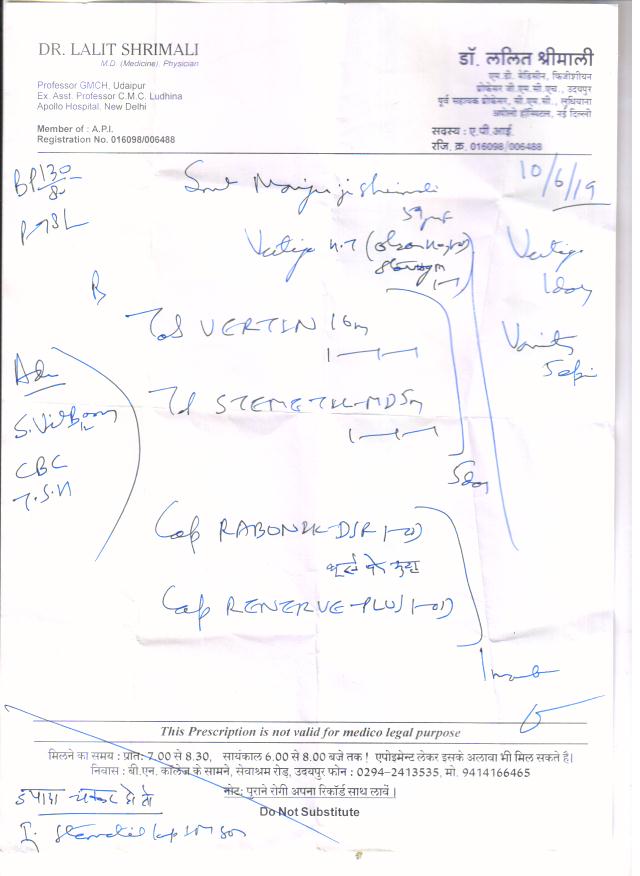 DR. LALIT SHRIMALI
M.D. (Medicine), Physician
Professor GMCH, Udaipur
Ex. Asst. Professor C.M.C. Ludhina
Apollo Hospital, New Delhi
Member of : A.P.I.
Registration No. 016098/006488
डॉ. ललित श्रीमाली
एम.डी. मेडिसीन, फिजीशीयन
प्रोफेसर जी.एम.सी.एच., उदयपुर
पूर्व सहायक प्रोफेसर, सी.एम.सी., लुधियाना
अपोलो हॉस्पिटल, नई दिल्ली
सदस्य : ए.पी.आई.
रजि. क्र. 016098/006488
BP 130/8
10/6/19
Vertigo
Vertigo
1day
Vomiting
VERTIN 16m
1-1-1
STEMETIL-MD 5m
1-1-1
5day
Adv
S. Vit B12
CBC
T.S.H
Cap RABONIK-DSR
Cap RENERVE-PLUS
This Prescription is not valid for medico legal purpose
मिलने का समय : प्रात: 7.00 से 8.30, सायंकाल 6.00 से 8.00 बजे तक ! एपोइमेन्ट लेकर इसके अलावा भी मिल सकते है।
निवास : बी.एन. कॉलेज के सामने, सेवाश्रम रोड़, उदयपुर फोन : 0294-2413535, मो. 9414166465
नोट: पुराने रोगी अपना रिकॉर्ड साथ लावें।
Do Not Substitute